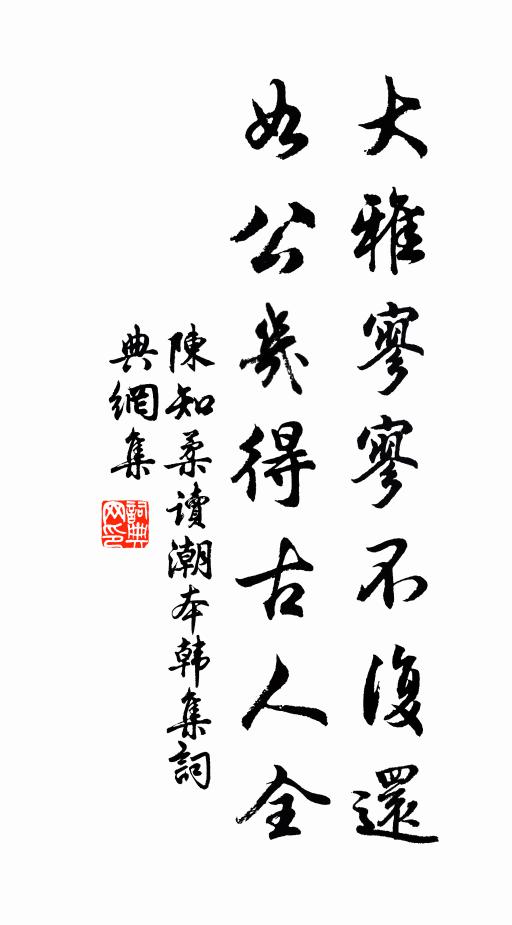 大雅寥寥不復還
如公幾得古人全
陳知柔讀潮本韩集詞
典網集
詞典
网印